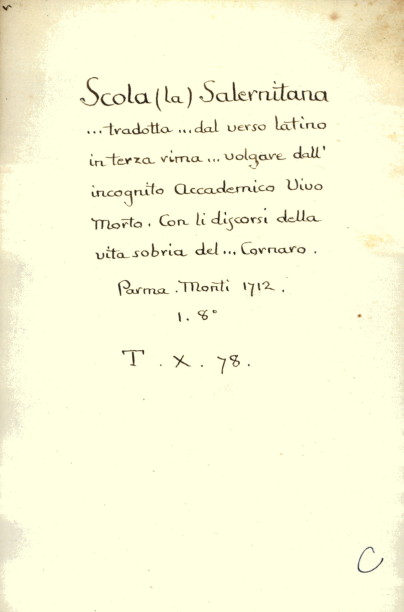 Scola (la) Salernitana
...tradotta ... dal verso latino
in terza rima ... volgare dall'
incognito Accademico Vivo
Morto. Con li discorsi della
vita sobria del ... Cornaro.
Parma. Monti 1712.
1. 8°
T. X. 78.
C